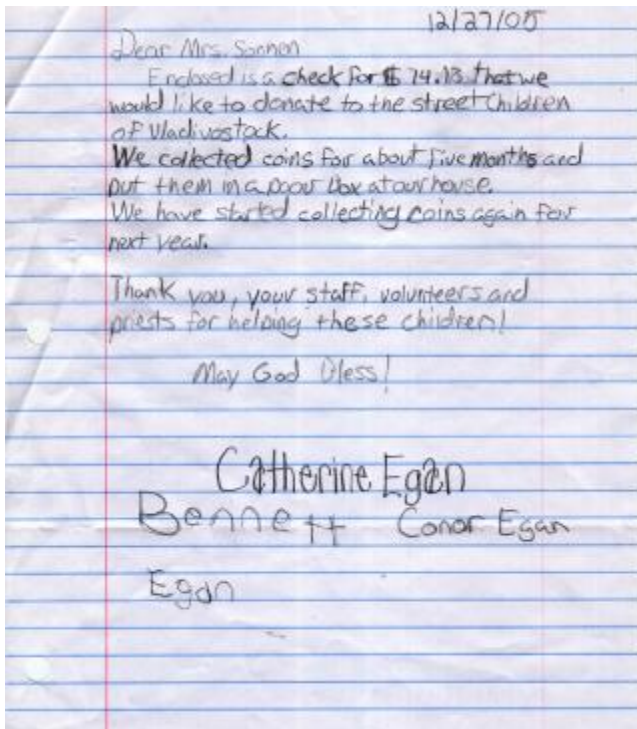 12/27/05
Dear Mrs. Soonen
Enclosed is a check for $ 74.13 that we
would like to donate to the street children
of Vladivostock.
We collected coins for about five months and
put them in a poor box at our house.
We have started collecting coins again for
next year.
Thank you, your staff, volunteers and
priests for helping these children!
May God Bless!
Catherine Egan
Bennett Conor Egan
Egan